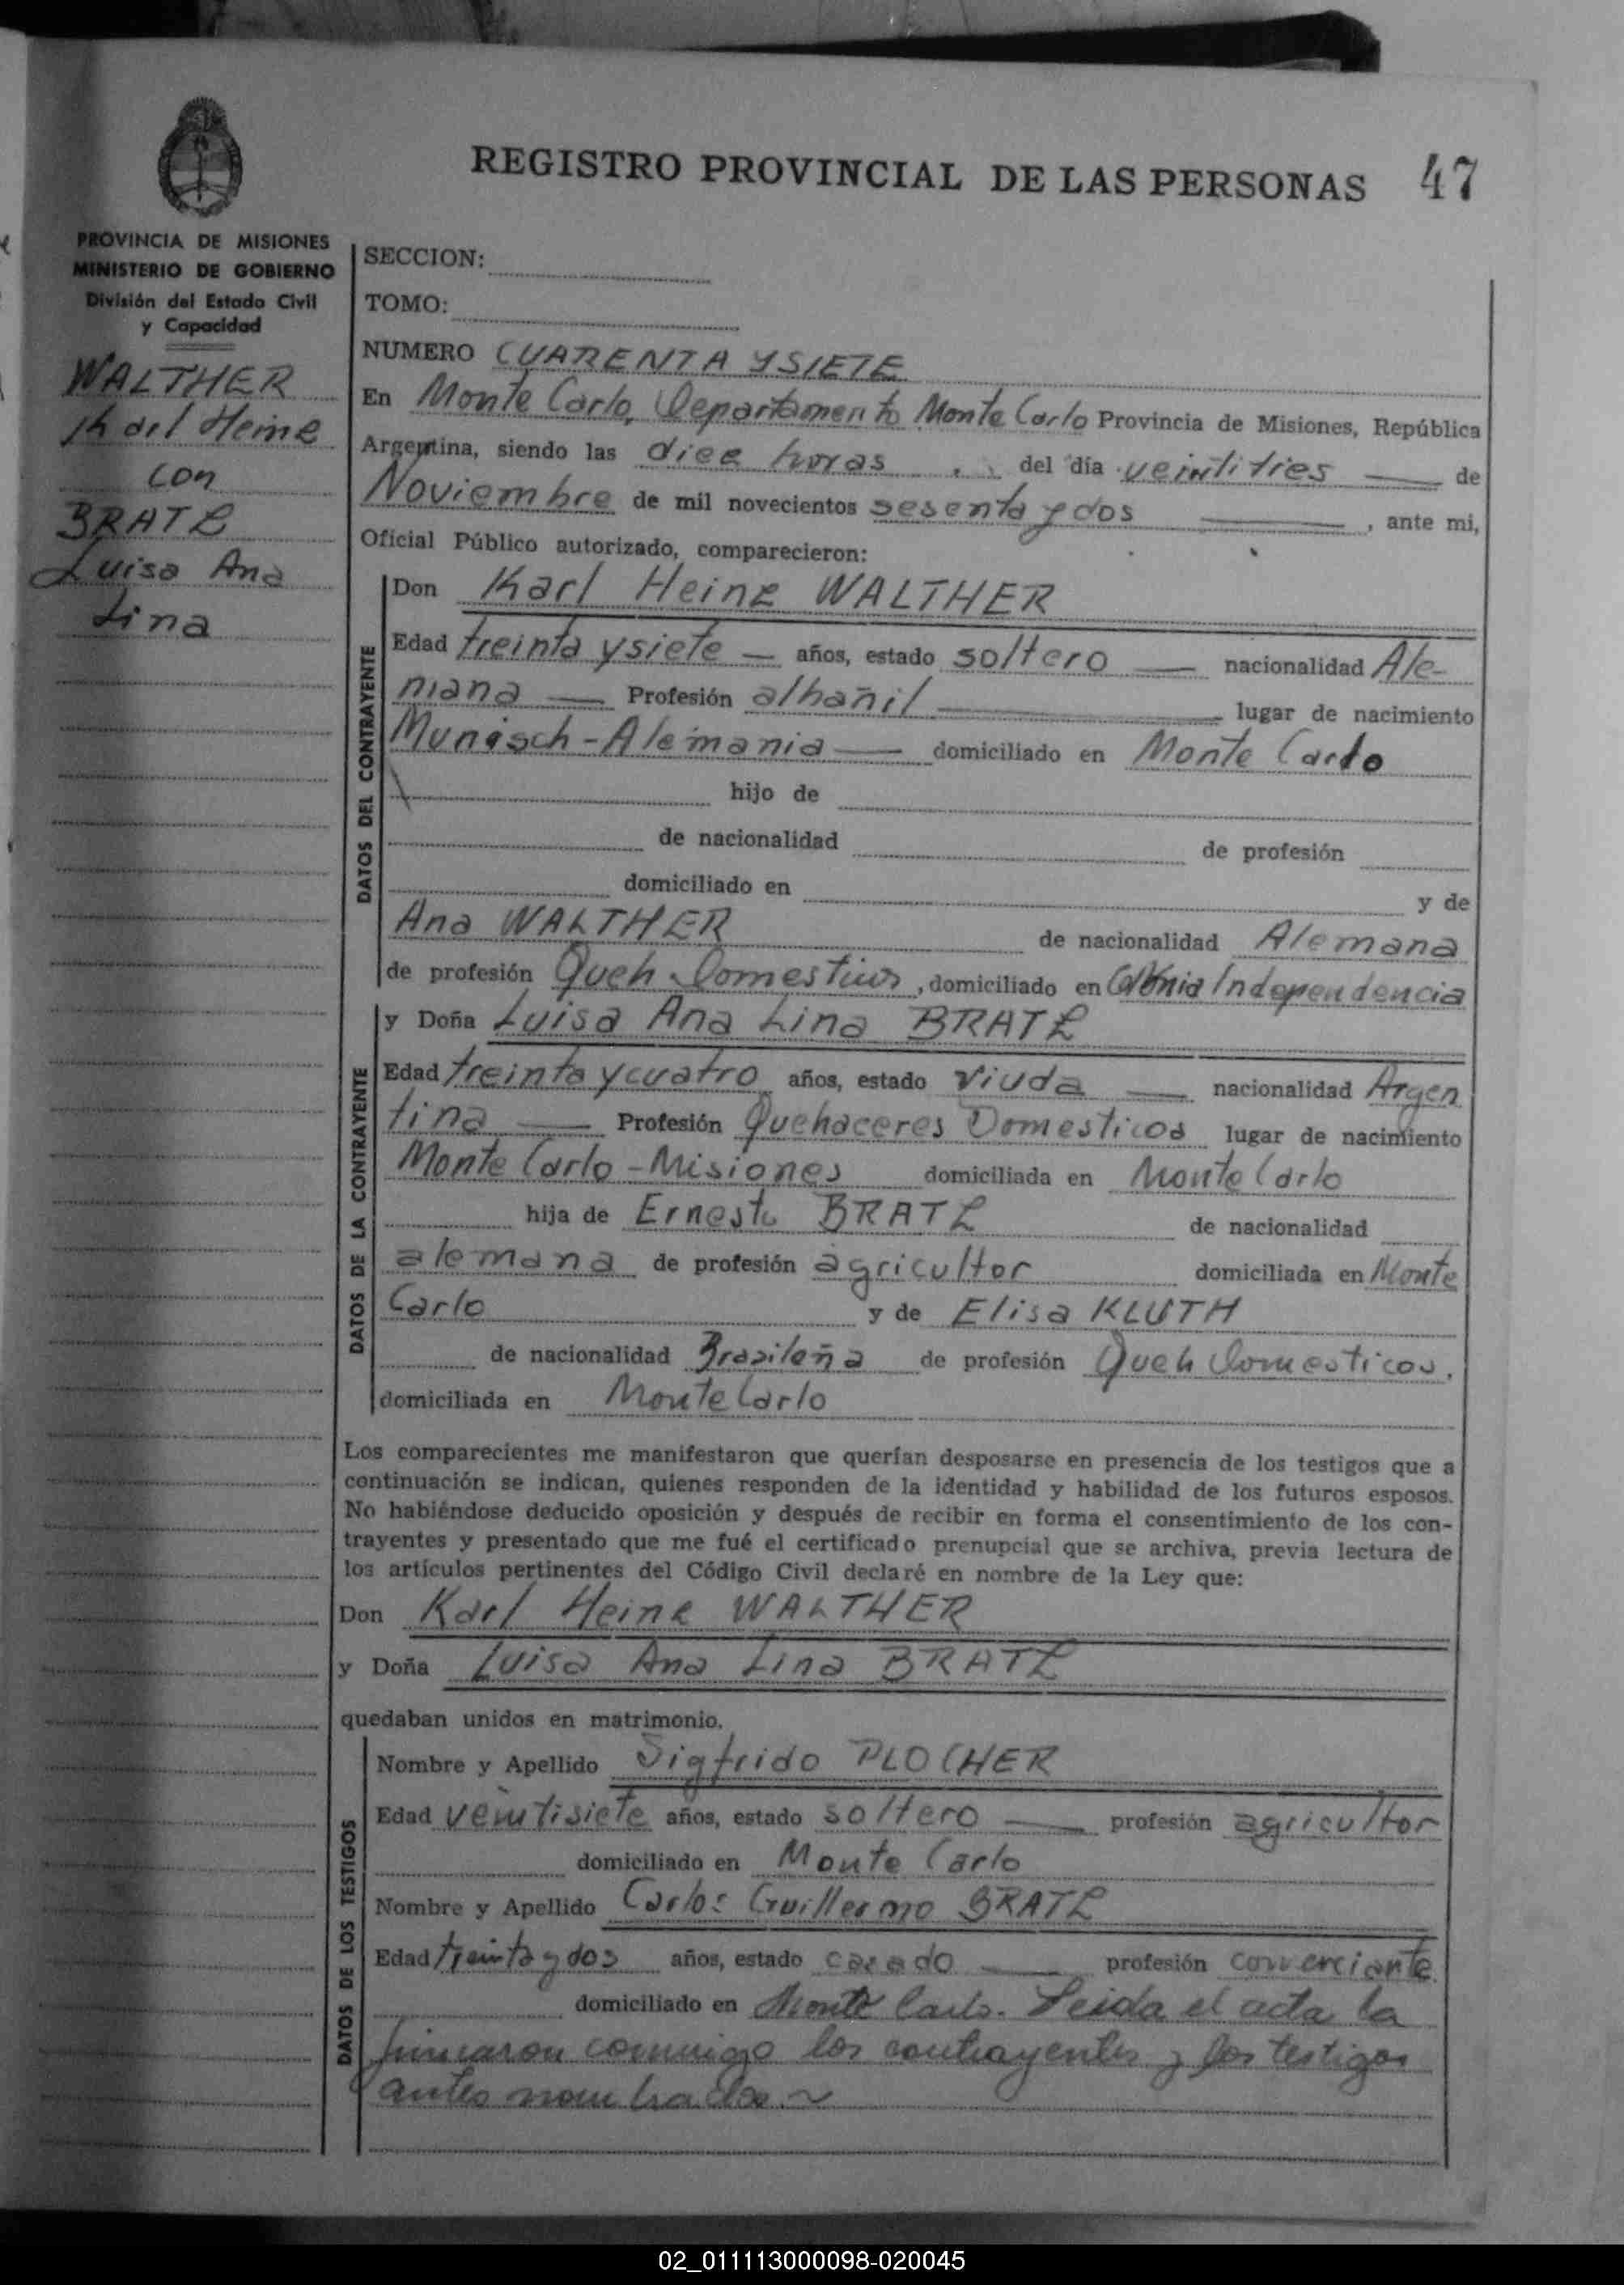 REGISTRO PROVINCIAL DE LAS PERSONAS 47
PROVINCIA DE MISIONES
MINISTERIO DE GOBIERNO
División del Estado Civil
y Capacidad
WALTHER
Heine
con
BRATZ
Luisa Ana
Lina
SECCION:
TOMO:
NUMERO CUARENTA Y SIETE
En Monte Carlo, Departamento Monte Carlo Provincia de Misiones, República
Argentina, siendo las diez horas del día veintitres de
Noviembre de mil novecientos sesenta y dos , ante mi,
Oficial Público autorizado, comparecieron:
DATOS DEL CONTRAYENTE
Don Karl Heinz WALTHER
Edad treinta y siete años, estado soltero nacionalidad Ale-
mana Profesión albañil lugar de nacimiento
Munisch-Alemania domiciliado en Monte Carlo
hijo de
de nacionalidad de profesión
domiciliado en y de
Ana WALTHER de nacionalidad Alemana
de profesión Queh Domesticos, domiciliado en Colonia Independencia
DATOS DE LA CONTRAYENTE
y Doña Luisa Ana Lina BRATZ
Edad treinta y cuatro años, estado Viuda nacionalidad Argen
tina Profesión Quehaceres Domesticos lugar de nacimiento
Monte Carlo-Misiones domiciliada en Monte Carlo
hija de Ernesto BRATZ de nacionalidad
alemana de profesión agricultor domiciliada en Monte
Carlo y de Elisa KLUTH
de nacionalidad Brasileña de profesión Queh Domesticos,
domiciliada en Monte Carlo
Los comparecientes me manifestaron que querían desposarse en presencia de los testigos que a
continuación se indican, quienes responden de la identidad y habilidad de los futuros esposos.
No habiéndose deducido oposición y después de recibir en forma el consentimiento de los con-
trayentes y presentado que me fué el certificado prenupcial que se archiva, previa lectura de
los artículos pertinentes del Código Civil declaré en nombre de la Ley que:
Don Karl Heinz WALTHER
y Doña Luisa Ana Lina BRATZ
quedaban unidos en matrimonio.
DATOS DE LOS TESTIGOS
Nombre y Apellido Sigfrido PLOCHER
Edad veintisiete años, estado soltero profesión agricultor
domiciliado en Monte Carlo
Nombre y Apellido Carlos Guillermo BRATZ
Edad treinta y dos años, estado casado profesión comerciante
domiciliado en Monte Carlo. Leida el acta la
firmaron conmigo los contrayentes y los testigos
antes nombrados ~
02_011113000098-020045